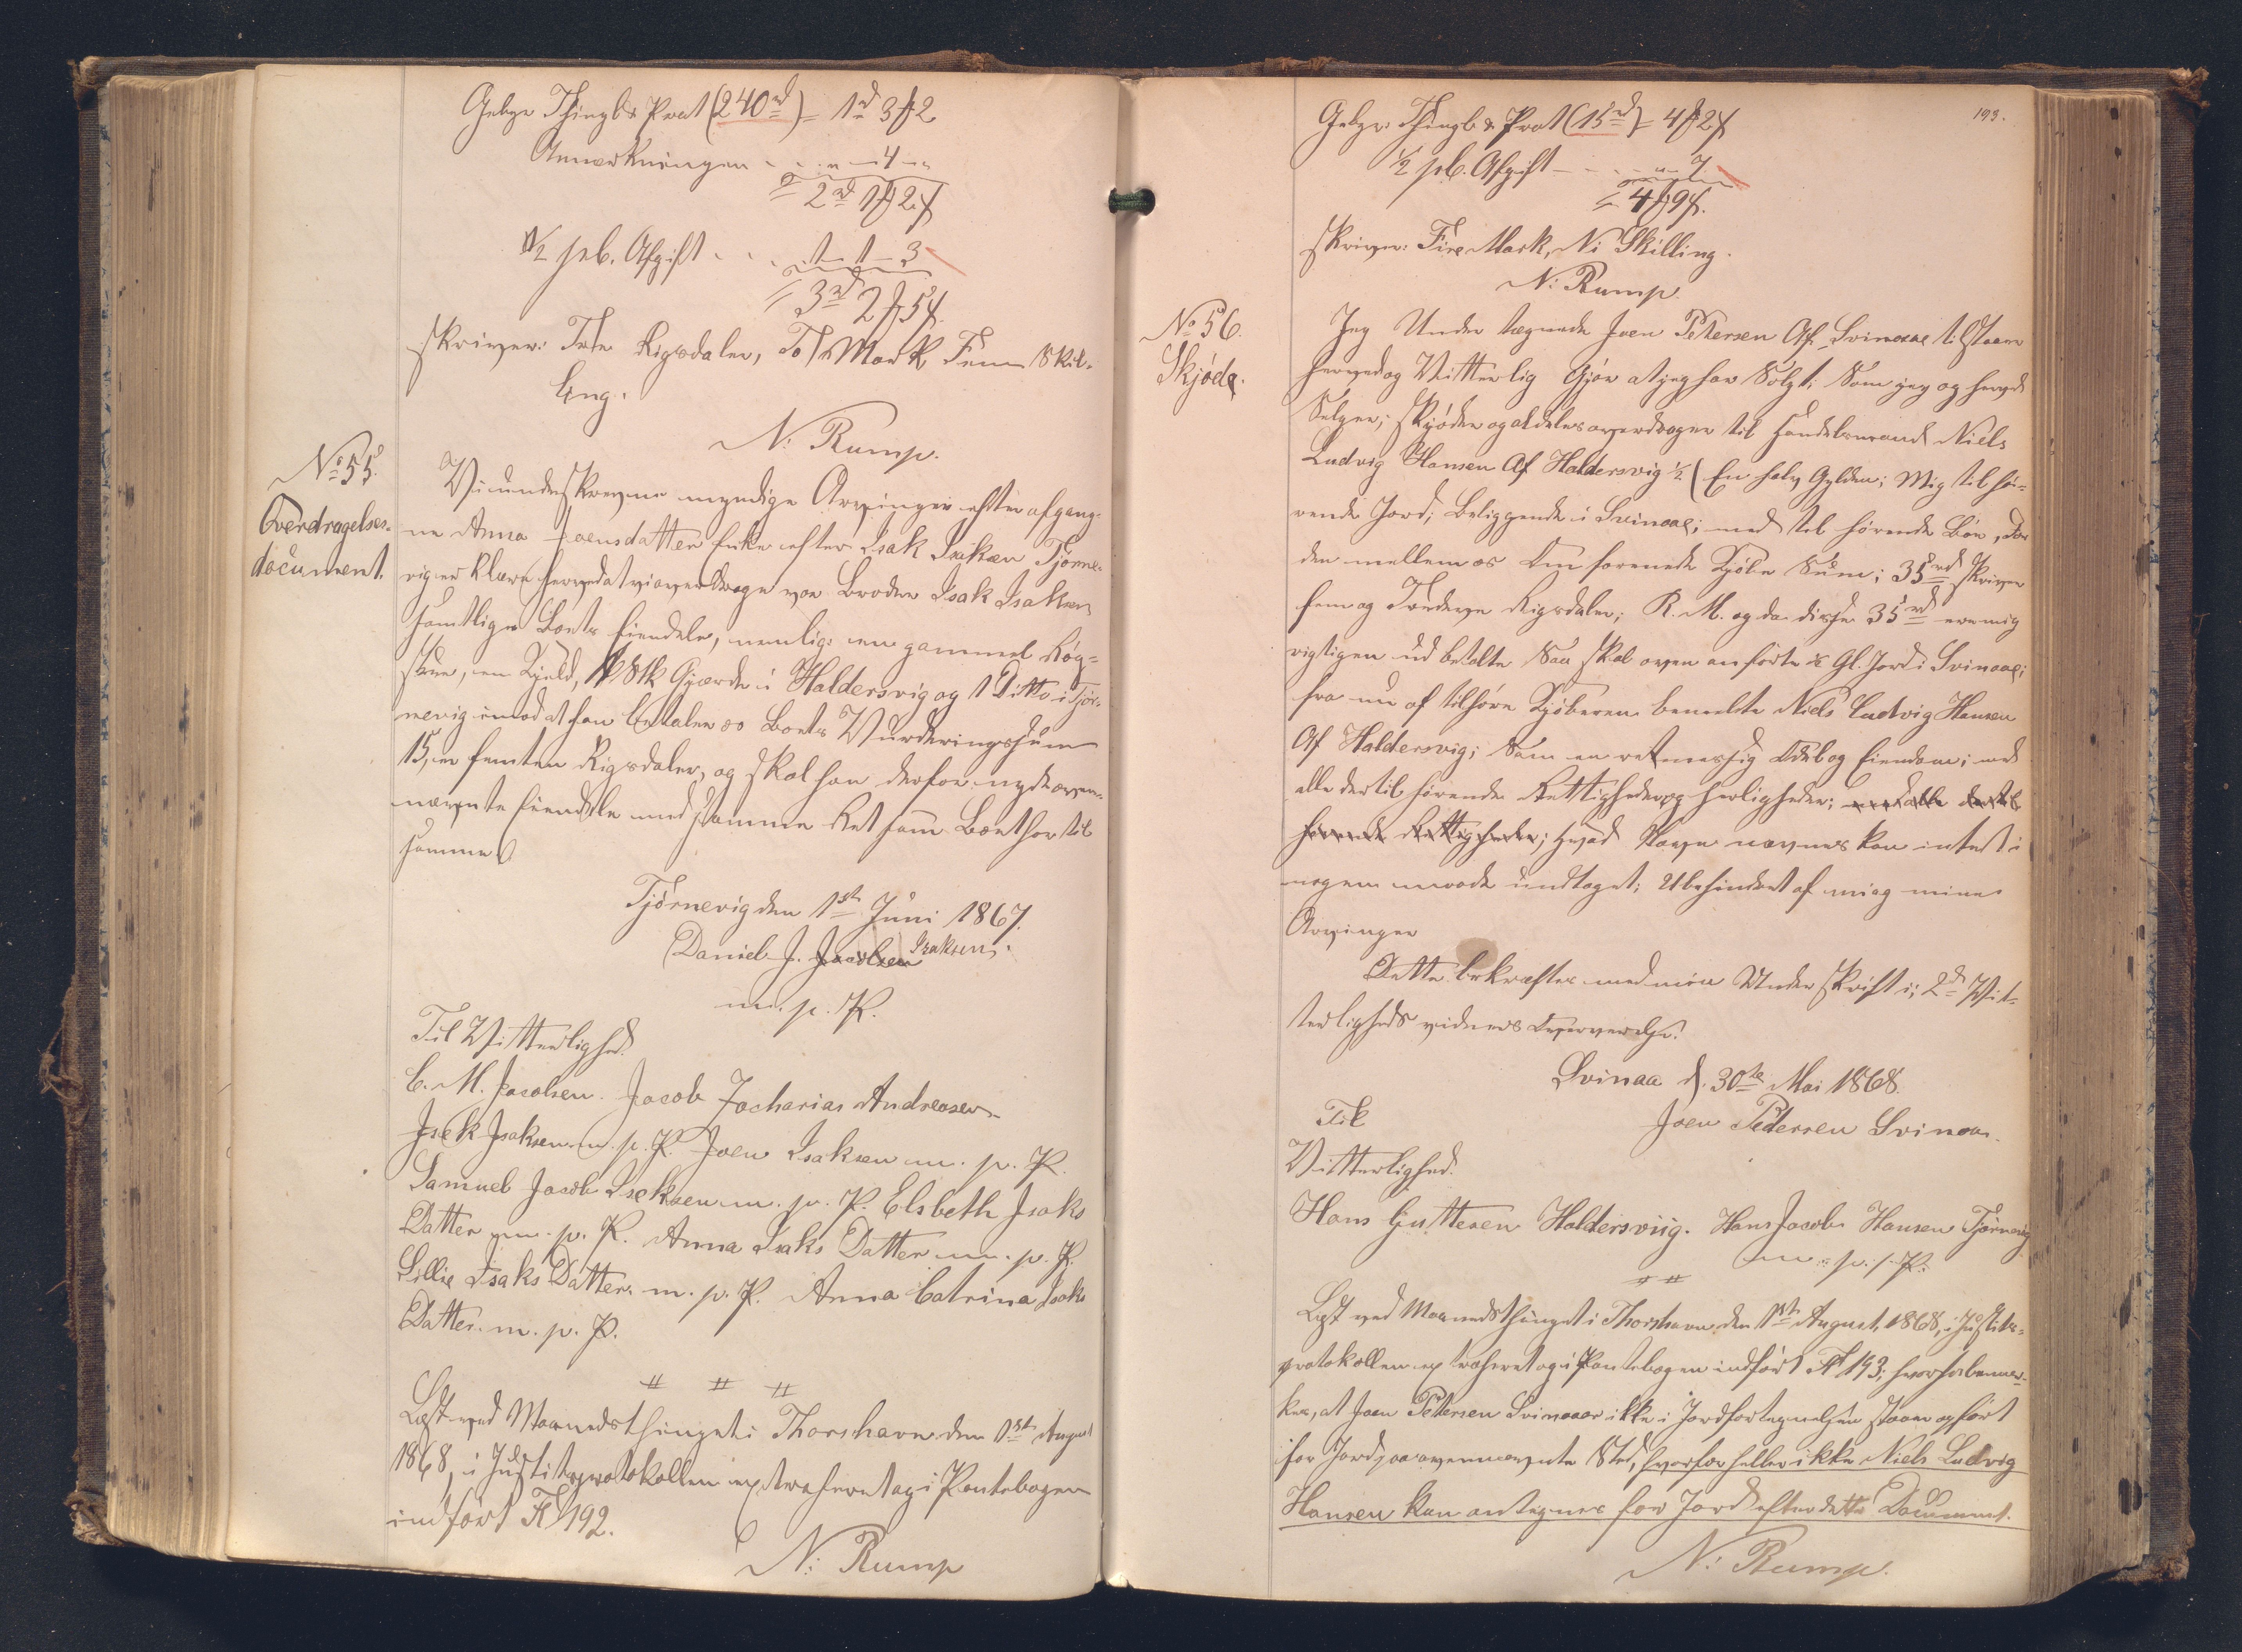 Gebyr Thingl. & Prot (240rd) = 1rd 3 ß 2
Anmærkningen - - - " - 4 - "
= 2rd 1 ß 2 ß
1/2 pCt. Afgift - - - 1 - 1 - 3
= 3rd 2 ß 5 ß.
skriver: Tre Rigsdaler, To Mark Fem Skil-
ling.
N: Rump.
No 55.
Overdragelses-
document.
Vi underskrevne myndige Arvinger efter afgang-
ne Anna Joensdatter Enke efter Isak Isaksen Tjørne-
vig erklære herved at vi overdrage vor Broder Isak Isaksen
samtlige Boets Eiendele, nemlig: en gammel Røg-
stue, en Hjeld, 1 Stk Gjærde i Haldersvig og 1 Ditto i Tjør-
nevig imod at han betaler os Boets Vurderingssum
15, er femten Rigsdaler, og skal han derfor nyde oven-
nævnte Eiendele med samme Ret som Boet har til
samme.
Tjørnevig den 1ste Juni 1867.
Daniel J. Jacobsen Isaksen.
m. p. P.
Til Vitterlighed.
C. M. Jacobsen. Jacob Zacharias Andreasen
Isek Jsaksen m. p. P. Joen Isaksen m. p. P.
Samuel Jacob Iseksen m. p. P. Elsbeth Jsaks
Datter m. p. P. Anna Isaks Datter m. p. P.
Sillie Isaks Datter. m. p. P. Anna Catrina Isaks
Datter. m. p. P.
Læst ved Maanedsthinget i Thorshavn den 1ste August
1868, i Justitsprotokollen extraheret og i Pantebogen
indført Fl 192.
N: Rump
193.
Gebyr: Thingl. & Prot (15rd) = 4 ß 2 ß
1/2 pCt. Afgift - - - " - 7
= 4 ß 9 ß.
skriver: Fire Mark, Ni Skilling.
N: Rump.
No 56.
Skjøde.
Jeg Under tægnede Joen Petersen Af Svinoae tilstaar
herved og Vitterlig Gjør at jeg har Solgt; Som jeg og herved
Selger; skjøder og aldeles overdrager til Handelsmand Niels
Ludvig Hansen Af Haldersvig 1/2 (En halv Gylden; Mig til hø-
rende Jord; Beliggende i Svinoae; med tel hørende Bøe, For
den mellem os Om forenede Kjøbe Sum; 35rd skriver
fem og Tredeve Rigsdaler; R. M. og da disse 35rd ere mig
rigtigen ud betalte Saa skal oven anførte 1/2 Gl. Jord i Svinoae;
fra nu af tilhøre Kjøberen benævnte Niels Ludvig Hansen
Af Haldersvig; Som en retmessig Odel og Eiendom; med
alle dertil hørende Rettigheder og Herligheder; med alle dertil
hørende Rettigheder; Hvad Navn nævnes kan intet i
nogen maade undtaget; Ubehindret af mig mine
Arvinger
Dette bekræftes med min Under skrift i; 2de Vit-
terligheds vidners Overværelse.
Svinaa d. 30te Mai 1868.
Joen Pedersen Svinoar.
Til
Vitterlighed.
Hans Guttesen Haldersviig. Hans Jacob Hansen Tjørnevig
m. p. P.
Læst ved Maanedsthinget i Thorshavn den 1ste August 1868, i Justits-
protokollen extraheret og i Pantebogen indført Fl 193; hvorhos bemær-
kes, at Joen Petersen Svinoaar ikke i Jordfortegnelsen staar opført
for Jord paa ovennævnte Sted, hvorfor heller ikke Niels Ludvig
Hansen kan antegnes for Jord efter dette Document.
N: Rump.